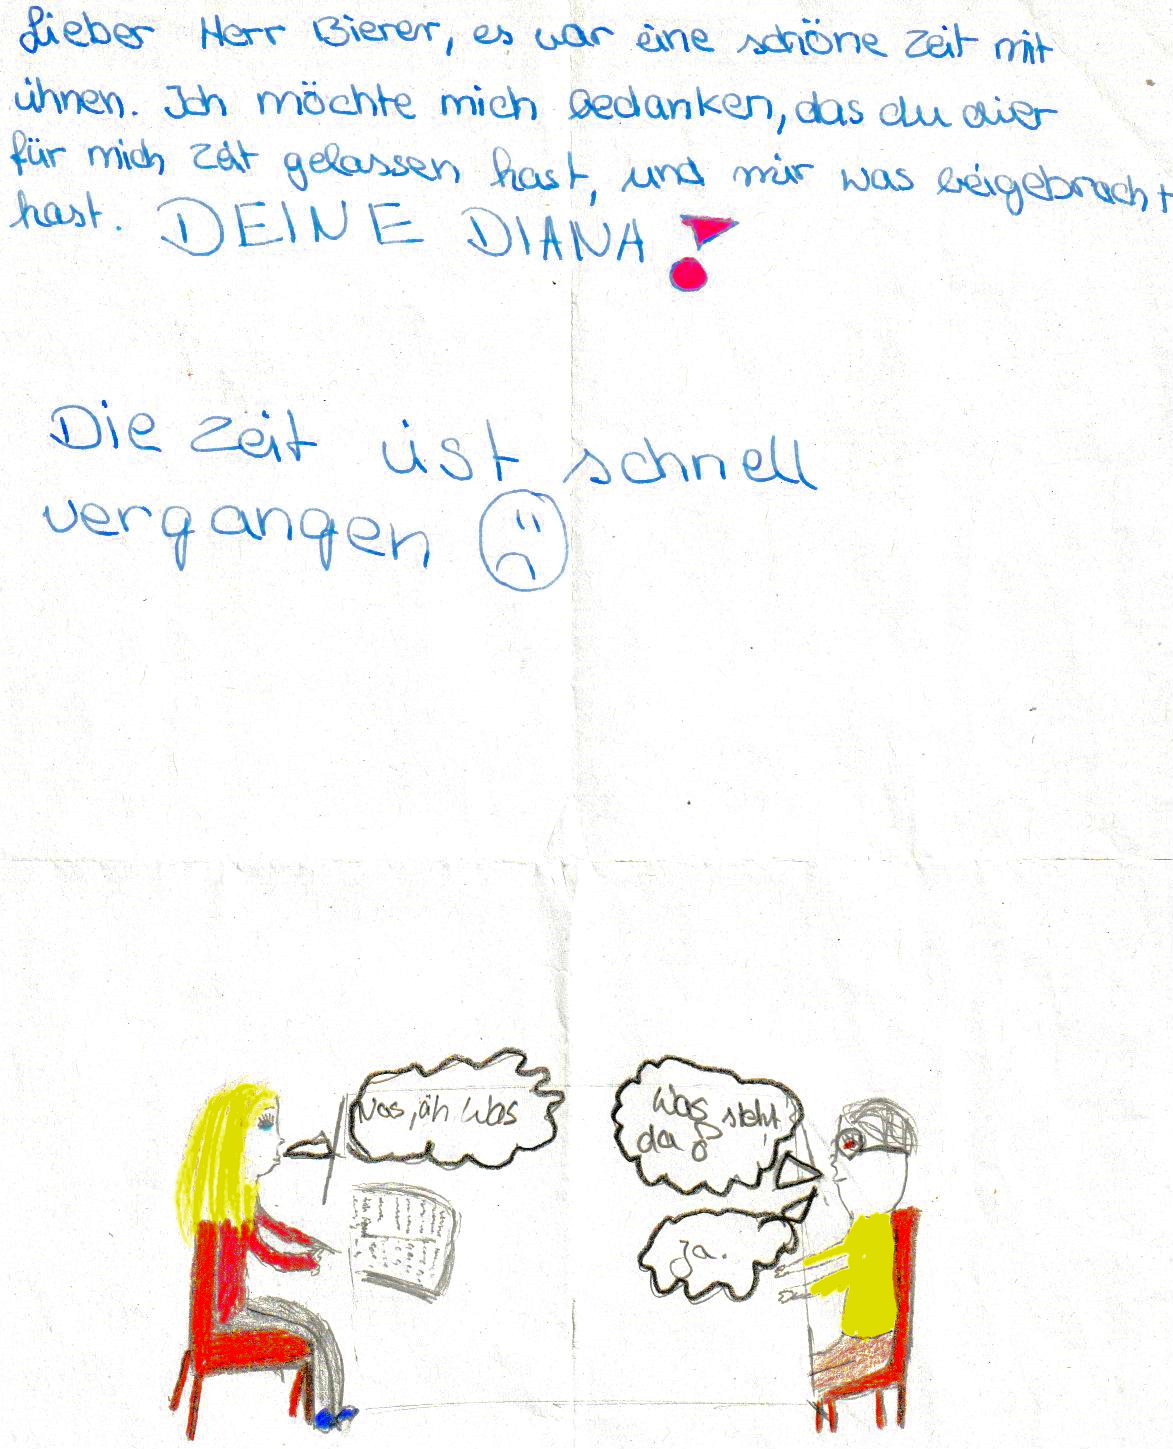 Lieber Herr Bierer, es war eine schöne Zeit mit
ühnen. Ich möchte mich bedanken, das du dier
für mich Zeit gelassen hast, und mir was beigebracht
hast. DEINE DIANA!
Die Zeit üst schnell
vergangen
Was, äh Was
Was steht
da?
Ja.